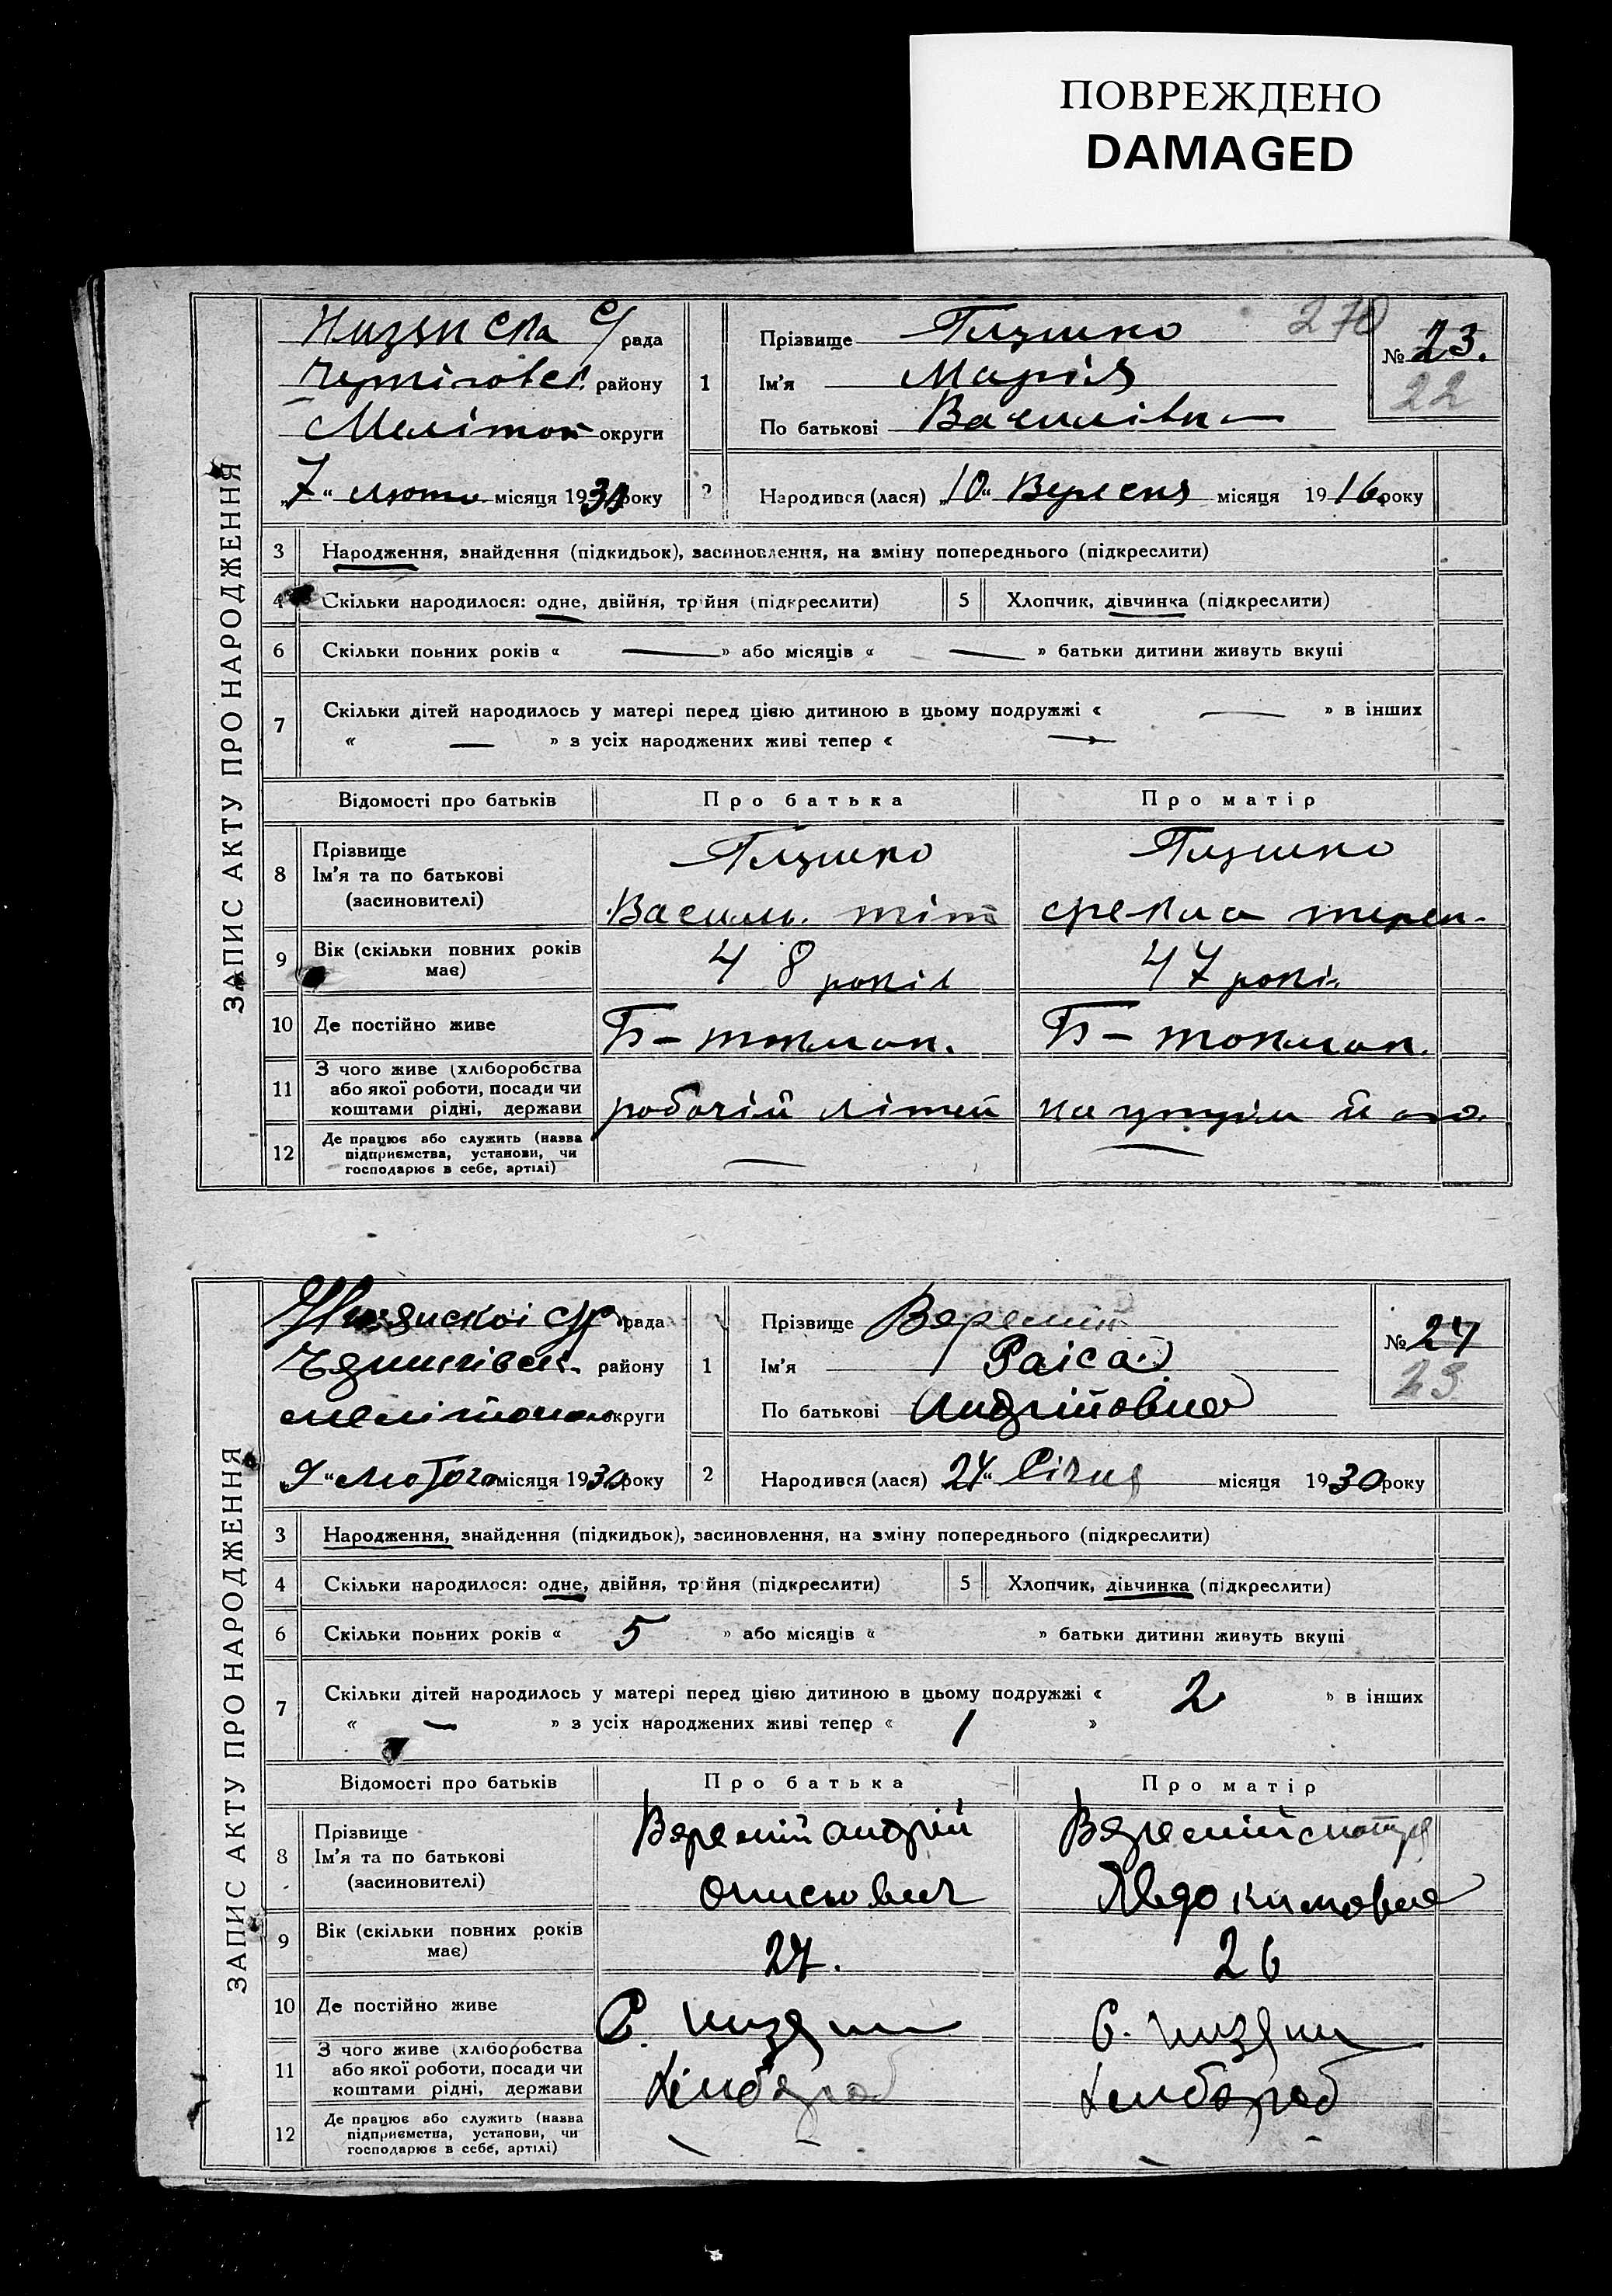 ПОВРЕЖДЕНО
DAMAGED
ЗАПИС АКТУ ПРО НАРОДЖЕННЯ
рада
району
округи
„7“ місяця 1930 року
270
№ 23.
22
1 Прізвище Глушко
Ім'я Марія
По батькові Василівн
2 Народився (лася) „10“ Вересня місяця 1916 року
3 Народження, знайдення (підкидьок), засиновлення, на зміну попереднього (підкреслити)
4 Скільки народилося: одне, двійня, трійня (підкреслити) 5 Хлопчик, дівчинка (підкреслити)
6 Скільки повних років « — » або місяців « — » батьки дитини живуть вкупі
7 Скільки дітей народилось у матері перед цією дитиною в цьому подружжі « — » в інших
« — » з усіх народжених живі тепер « —
Відомості про батьків Про батька Про матір
8 Прізвище
Ім'я та по батькові
(засиновителі)
Глушко Глушко
Василь
9 Вік (скільки повних років має) 48 років 47 рокі
10 Де постійно живе Б-токмак. Б-токмак.
11 З чого живе (хліборобства
або якої роботи, посади чи
коштами рідні, держави
робочій
12 Де працює або служить (назва
підприємства, установи, чи
господарює в себе, артілі)
— —
ЗАПИС АКТУ ПРО НАРОДЖЕННЯ
рада
району
округи
„9“ Лютого місяця 1930 року
№ 24
23
1 Прізвище Веремій
Ім'я Раіса
По батькові Андрійовна
2 Народився (лася) „24“ Січня місяця 1930 року
3 Народження, знайдення (підкидьок), засиновлення, на зміну попереднього (підкреслити)
4 Скільки народилося: одне, двійня, трійня (підкреслити) 5 Хлопчик, дівчинка (підкреслити)
6 Скільки повних років « 5 » або місяців « » батьки дитини живуть вкупі
7 Скільки дітей народилось у матері перед цією дитиною в цьому подружжі « 2 » в інших
« — » з усіх народжених живі тепер « 1 »
Відомості про батьків Про батька Про матір
8 Прізвище
Ім'я та по батькові
(засиновителі)
Веремій андрій Веремій
9 Вік (скільки повних років має) 27. 26
10 Де постійно живе С. низяни С. низяни
11 З чого живе (хліборобства
або якої роботи, посади чи
коштами рідні, держави
12 Де працює або служить (назва
підприємства, установи, чи
господарює в себе, артілі)